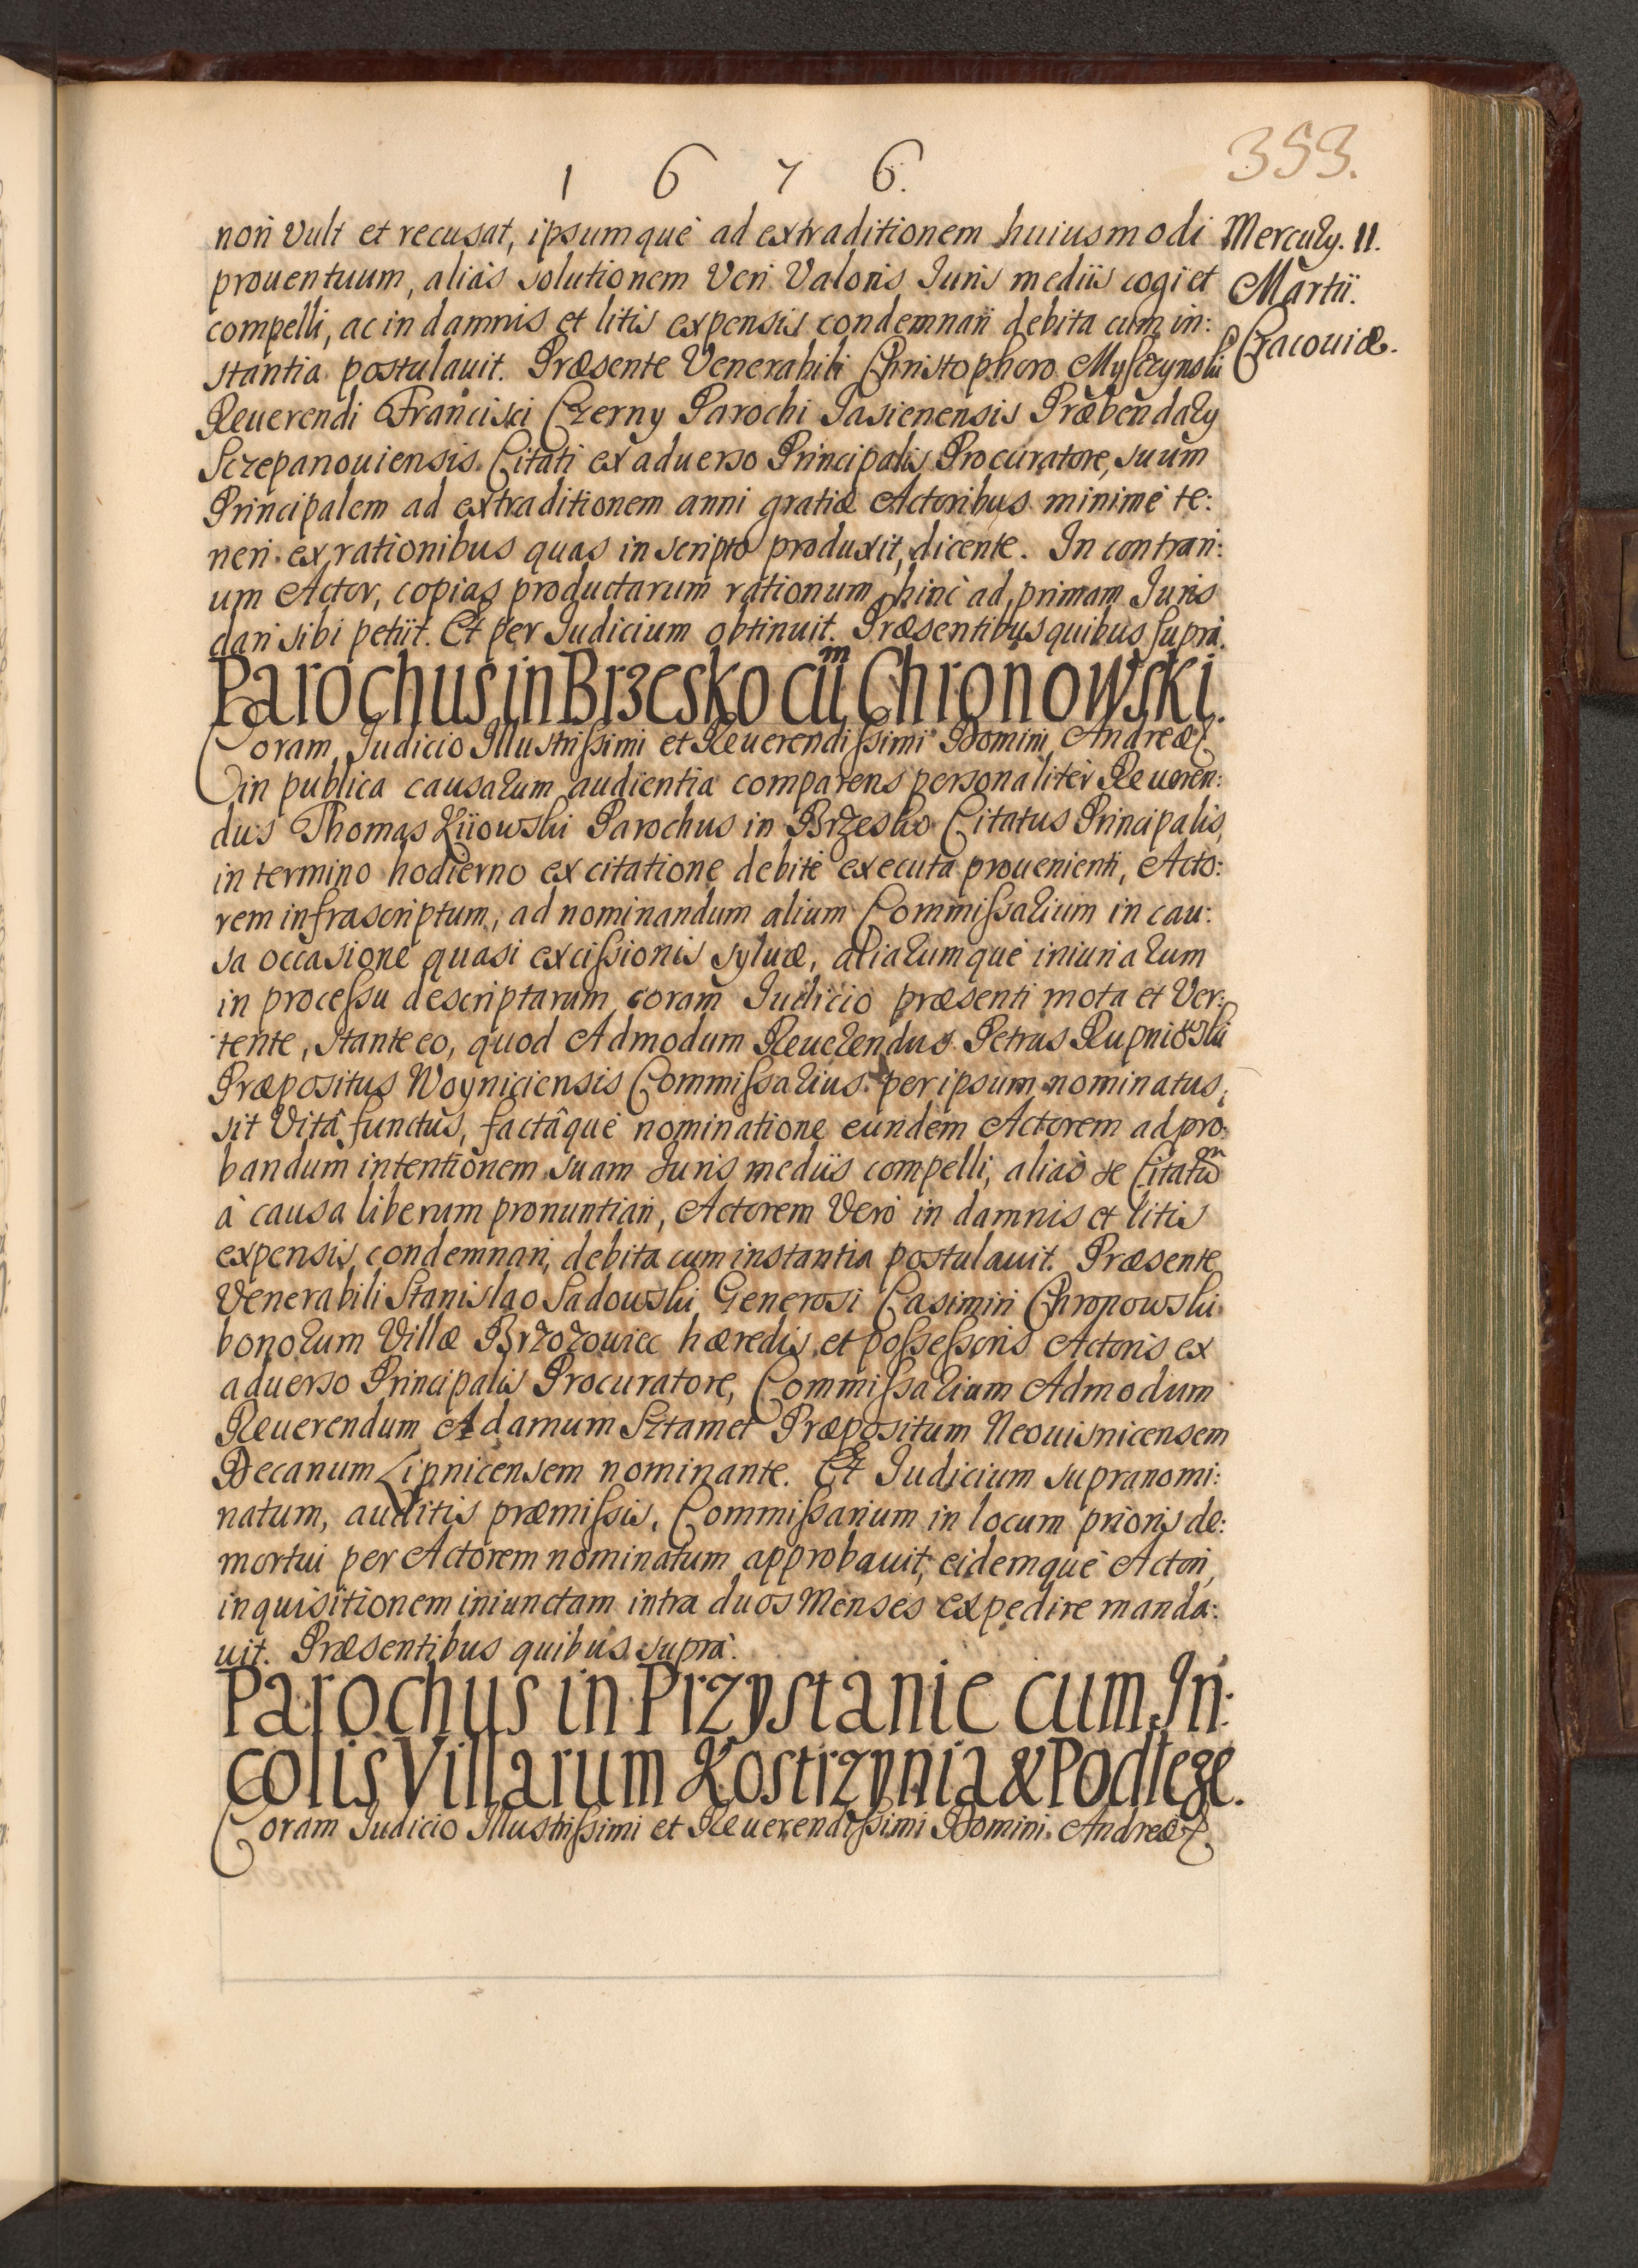 1 6 7 6.
353.
non vult et recusat, ipsumquè ad extraditionem huiusmodi
prouentuum, aliàs solutionem Veri Valoris Iuris mediis cogi et
compelli, ac in damnis et litis expensis condemnari debita cum in:
stantia postulauit. Præsente Venerabili Christophoro Mysczynski
Reuerendi Francisci Czerny Parochi Jasienensis Præbendary
Sczepanouiensis Citati ex aduerso Principalis Procuratore, suum
Principalem ad extraditionem anni gratiæ Actoribus minimè te:
neri ex rationibus quas in scripto produxit, dicente. In contrari:
um Actor, copias productarum rationum hinc ad primam Iuris
dari sibi petiit. Et per Iudicium obtinuit. Præsentibus quibus suprà.
Parochus in Brzesko cū Chronowski.
Coram Iudicio Illustrissimi et Reuerendissimi Domini Andreæ &
in publica causarum audientia comparens personalitèr Reueren:
dus Thomas Kiiowski Parochus in Brzesko Citatus Principalis,
in termino hodierno ex citatione debitè executa prouenienti, Acto:
rem infrascriptum, ad nominandum alium Commissarium in cau:
sa occasione quasi excissionis syluæ, aliarumquè iniuriarum
in processu descriptarum coram Iudicio præsenti mota et Ver:
tente, stante eo, quod Admodum Reuerendus Petrus Rupniowski
Præpositus Woyniciensis Commissarius per ipsum nominatus,
sit Vitâ functus, factâquè nominatione eundem Actorem ad pro:
bandum intentionem suam Iuris mediis compelli, aliàs se Citatū
à causa liberum pronuntiari, Actorem Verò in damnis et litis
expensis condemnari, debita cum instantia postulauit. Præsente
Venerabili Stanislao Sadowski Generosi Casimiri Chronowski
bonorum Villæ Brzozowiec hæredis et possessoris Actoris ex
aduerso Principalis Procuratore, Commissarium Admodum
Reuerendum Adamum Sztamet Præpositum Neouisnicensem
Decanum Lipnicensem nominante. Et Iudicium supranomi:
natum, auditis præmissis, Commissarium in locum prioris de:
mortui per Actorem nominatum approbauit, eidemquè Actori,
inquisitionem iniunctam intra duos Menses expedire manda:
uit. Præsentibus quibus suprà.
Parochus in Przystanie cum In:
colis Villarum Kostrzynia & Podłęże.
Coram Iudicio Illustrissimi et Reuerendissimi Domini Andreæ &.
Mercury. 11.
Martii.
Cracouiæ.